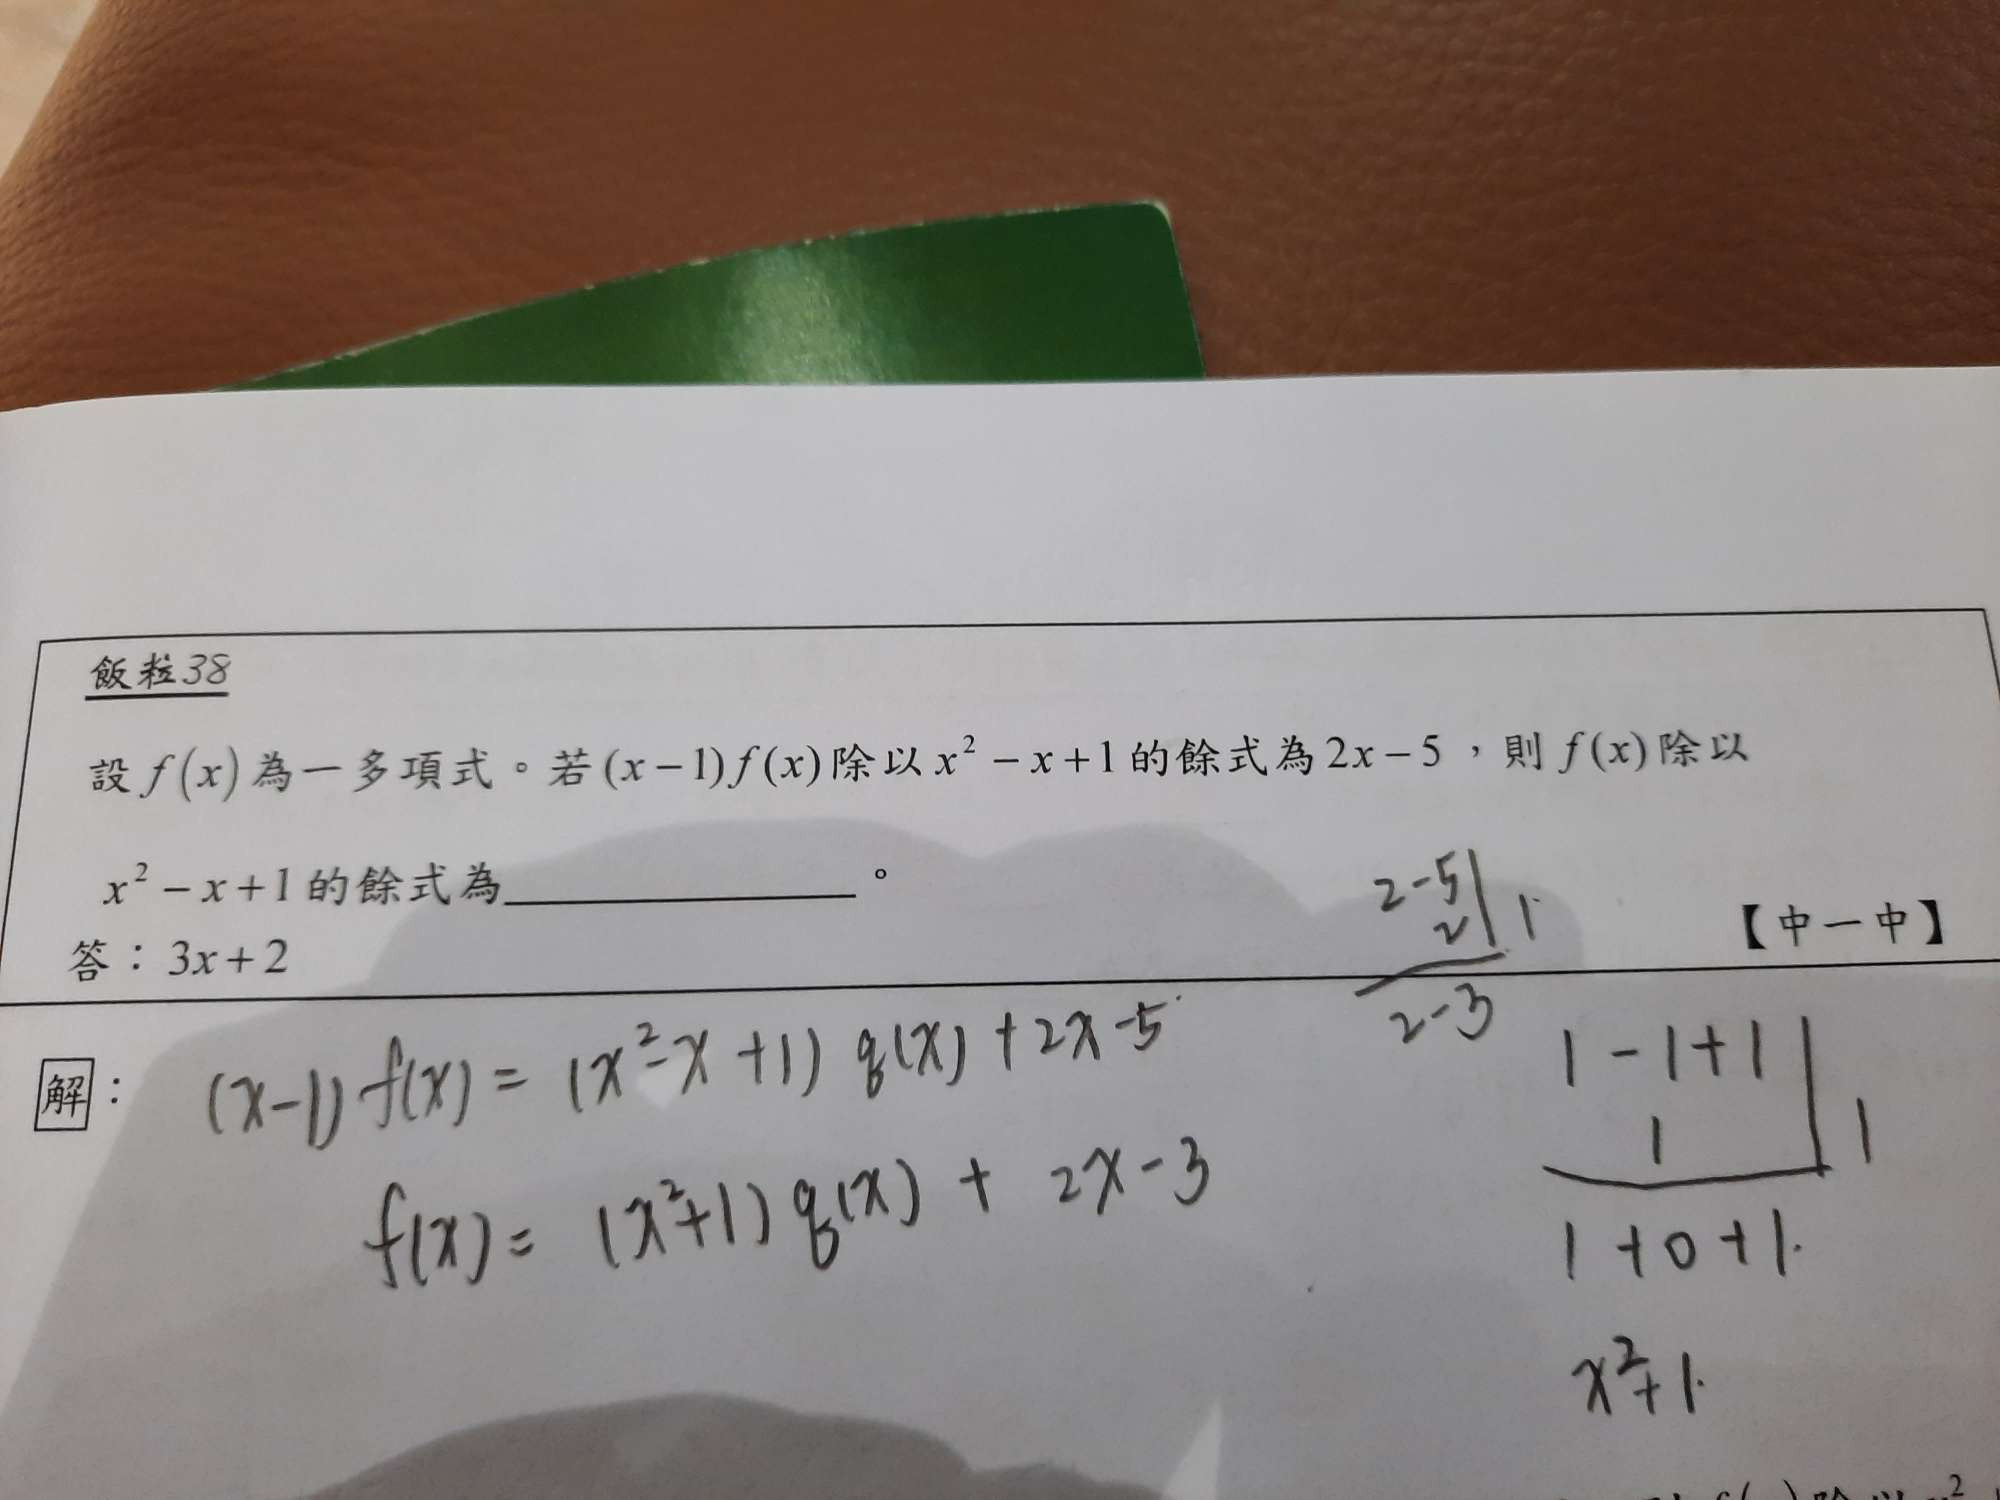 飯粒38
設 f(x) 為一多項式。若 (x−1)f(x) 除以 x² − x + 1 的餘式為 2x − 5，則 f(x) 除以
x² − x + 1 的餘式為＿＿＿＿＿＿。
【中一中】
答：3x + 2
2-5 | 1
2
2-3
解：
(x-1) f(x) = (x²-x+1) q(x) + 2x-5
f(x) = (x²+1) q(x) + 2x-3
1-1+1 | 1
1
1+0+1
x²+1